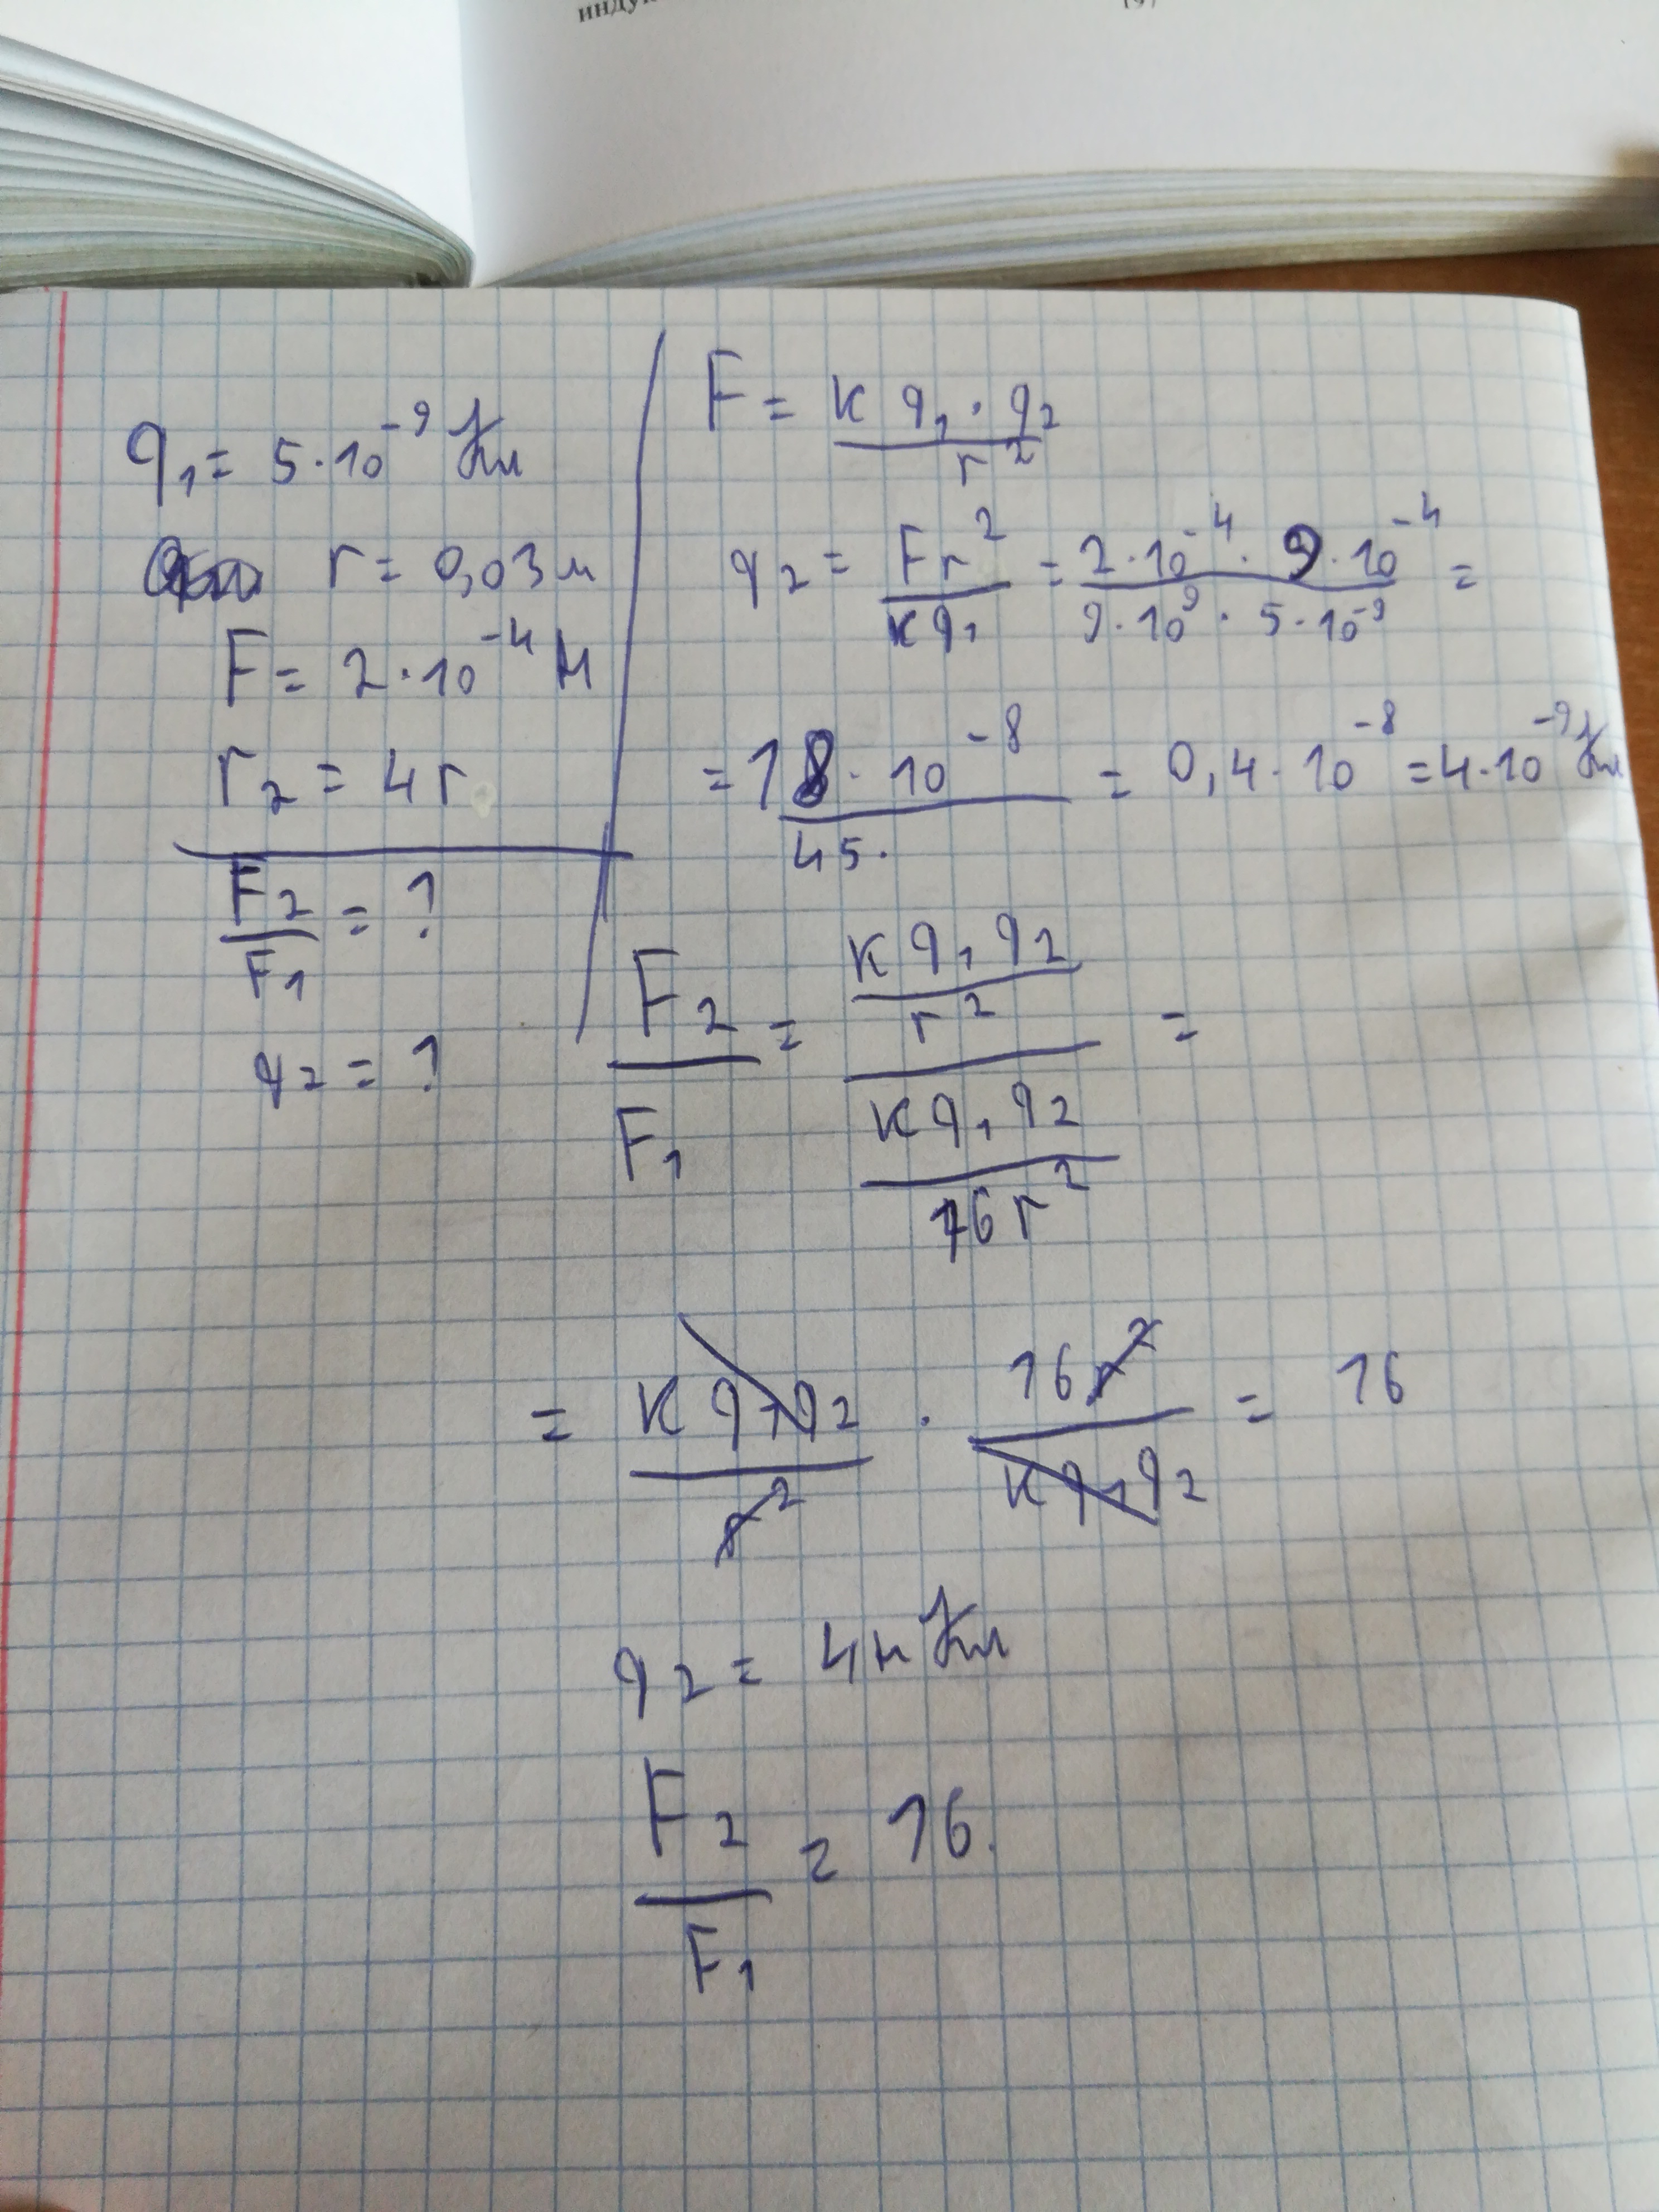 инду
q₁ = 5·10⁻⁹ Кл
r = 0,03 м
F = 2·10⁻⁴ Н
r₂ = 4r
F₂/F₁ = ?
q₂ = ?
F = k q₁·q₂ / r²
q₂ = Fr²/kq₁ = 2·10⁻⁴ · 9·10⁻⁴ / 9·10⁹ · 5·10⁻⁹ =
= 18·10⁻⁸ / 45. = 0,4·10⁻⁸ = 4·10⁻⁹ Кл
F₂/F₁ = (k q₁ q₂ / r²) / (k q₁ q₂ / 16 r²) =
= k q₁ q₂ / r² · 16 r² / k q₁ q₂ = 16
q₂ = 4 н Кл
F₂/F₁ = 16.